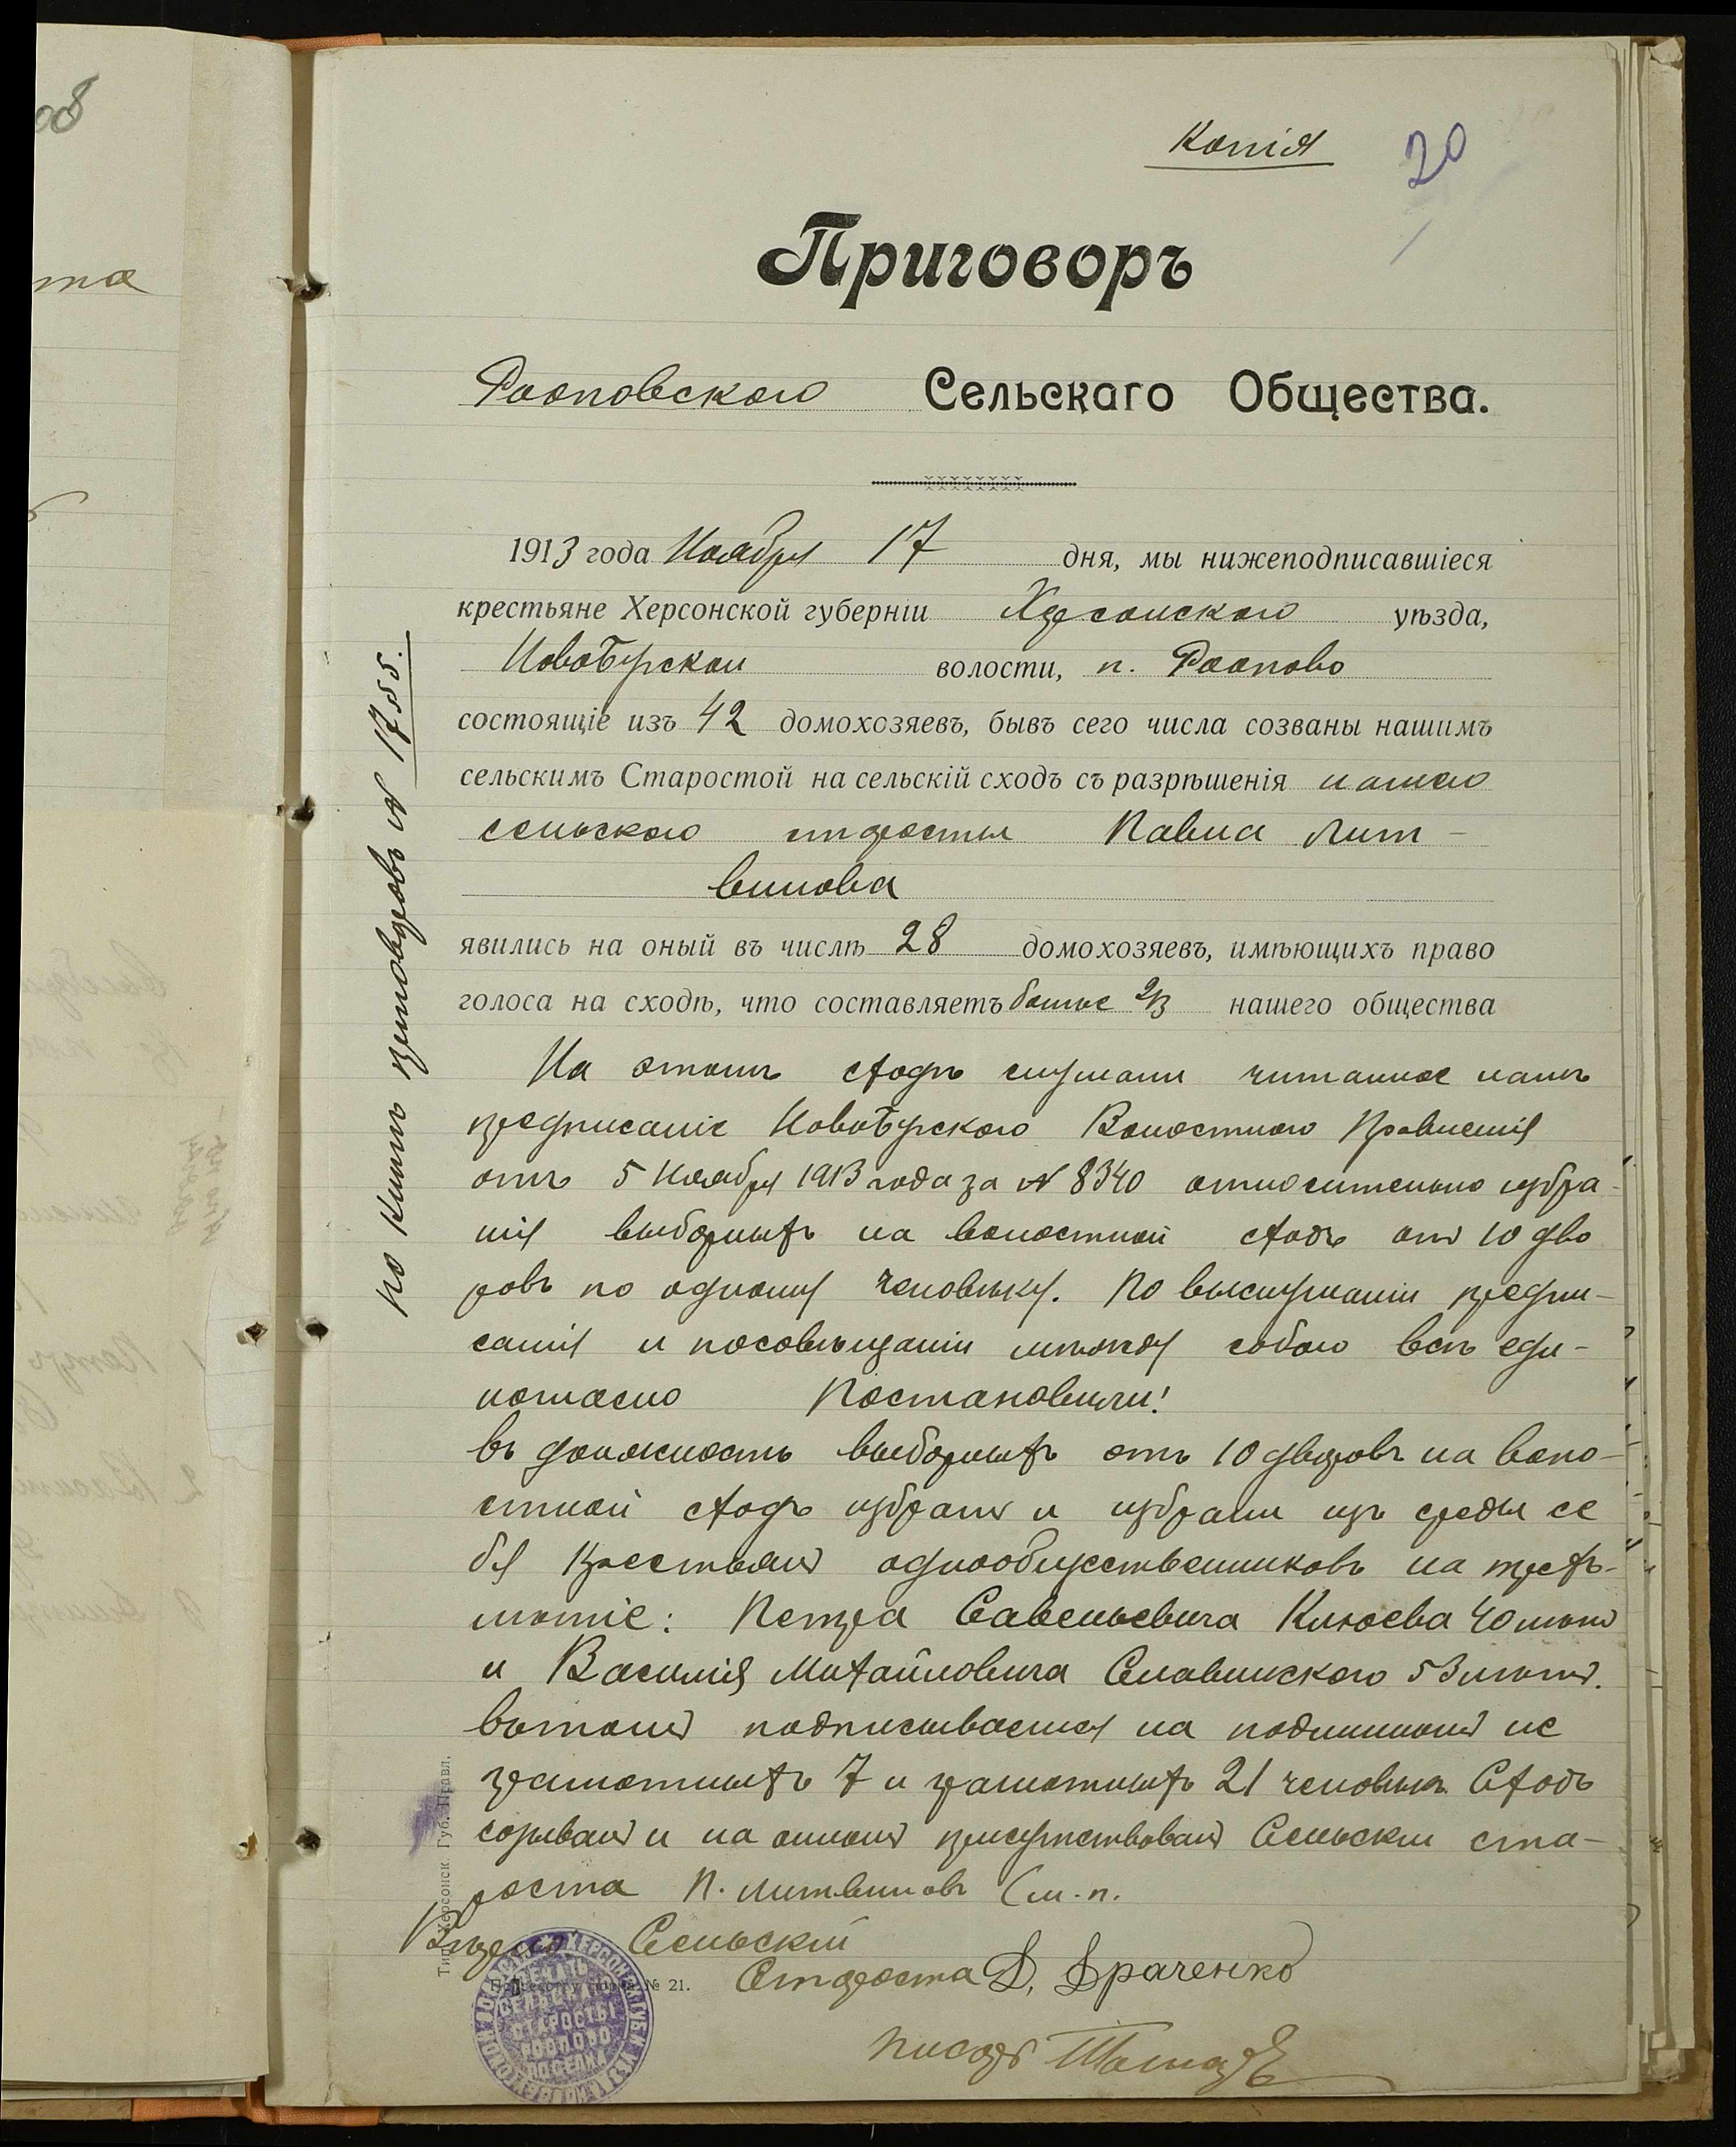 Копія 20
Приговоръ
Рооповского Сельскаго Общества.
1913 года Ноября 17 дня, мы нижеподписавшіеся
крестьяне Херсонской губерніи Херсонского уѣзда,
НовоБугской волости, п. Роопово
состоящіе изъ 42 домохозяевъ, бывъ сего числа созваны нашимъ
сельскимъ Старостой на сельскій сходъ съ разрѣшенія нашего
сельского старосты Павла Лит-
винова
явились на оный въ числѣ 28 домохозяевъ, имѣющихъ право
голоса на сходѣ, что составляетъ более 2/3 нашего общества
На этомъ сходѣ слушали читанное намъ
предписаніе НовоБугского Волостного Правленія
отъ 5 Ноября 1913 года за № 8340 относительно избра-
нія выборныхъ на волостной сходъ от 10 дво
ровъ по одному человѣку. По выслушаніи предпи-
санія и посовѣщаніи между собою всѣ еди-
ногласно Постановили!
въ должность выборныхъ отъ 10 дворовъ на воло-
стной сходъ избрать и избрали изъ среды се
бя крестьян однообщественниковъ на трех-
летіе: Петра Савельевича Клюева 40 лѣтъ
и Василія Михайловича Славинского 53 лѣтъ.
вътомъ подписываемся на подлиномъ не
грамотныхъ 7 и грамотныхъ 21 человѣкъ. Сходъ
созывалъ и на ономъ присутствовалъ Сельски ста-
роста П. Литвиновъ (м.п.
Вѣрно: Сельскій
Староста Д. Драченко
писарь
По реестру форма № 21.
Тип. Херсонск. Губ. Правл.
по книгѣ приговоровъ №
ПЕЧАТЬ СЕЛЬСКАГО СТАРОСТЫ РООПОВО ПОСЕЛКА